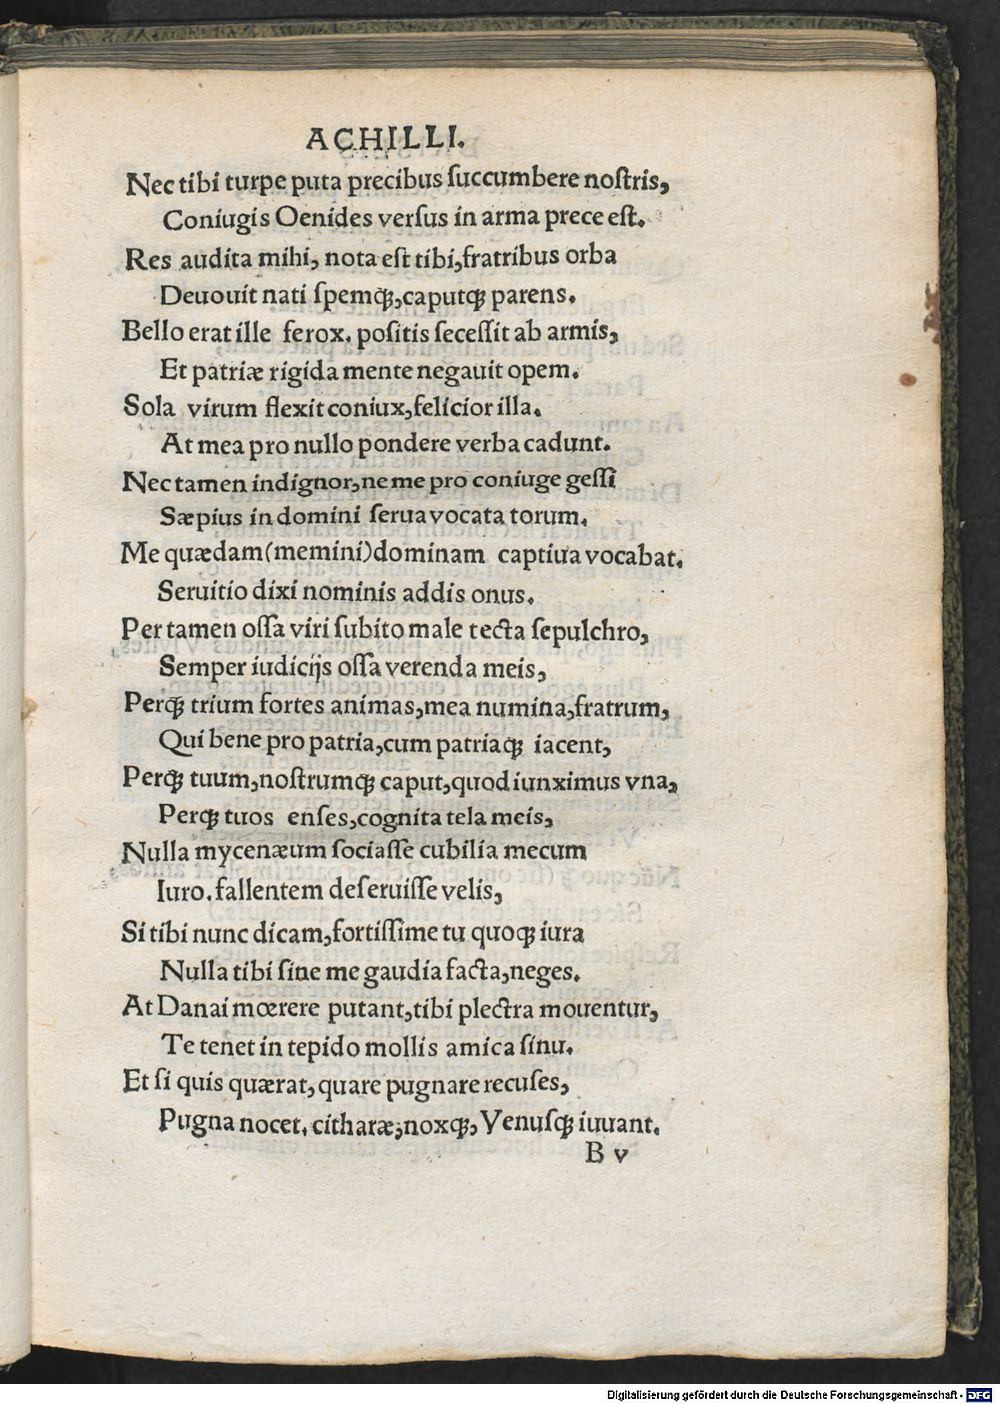 ACHILLI.
Nec tibi turpe puta precibus ſuccumbere noſtris,
Coniugis Oenides verſus in arma prece eſt.
Res audita mihi, nota eſt tibi, fratribus orba
Deuouit nati ſpemq;, caputq; parens.
Bello erat ille ferox. poſitis ſeceſſit ab armis,
Et patriæ rigida mente negauit opem.
Sola virum flexit coniux, felicior illa.
At mea pro nullo pondere verba cadunt.
Nec tamen indignor, ne me pro coniuge geſſi
Sæpius in domini ſerua vocata torum.
Me quædam (memini) dominam captiua vocabat.
Seruitio dixi nominis addis onus.
Per tamen oſſa viri ſubito male tecta ſepulchro,
Semper iudicijs oſſa verenda meis,
Perq; trium fortes animas, mea numina, fratrum,
Qui bene pro patria, cum patriaq; iacent,
Perq; tuum, noſtrumq; caput, quod iunximus vna,
Perq; tuos enſes, cognita tela meis,
Nulla mycenæum ſociaſſe cubilia mecum
Iuro. fallentem deſeruiſſe velis,
Si tibi nunc dicam, fortiſſime tu quoq; iura
Nulla tibi ſine me gaudia facta, neges.
At Danai mœrere putant, tibi plectra mouentur,
Te tenet in tepido mollis amica ſinu.
Et ſi quis quærat, quare pugnare recuſes,
Pugna nocet. citharæ, noxq;, Venuſq; iuuant.
B v
Digitalisierung gefördert durch die Deutsche Forschungsgemeinschaft - DFG